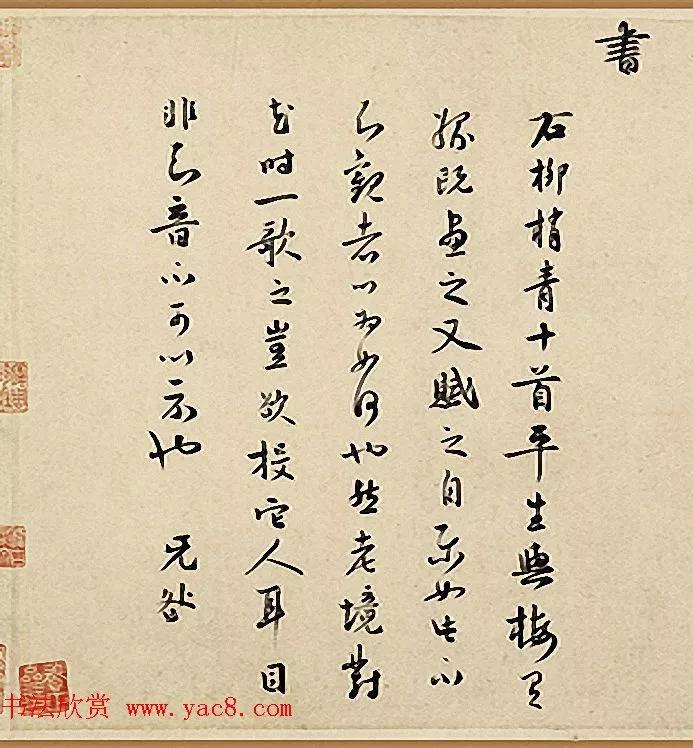 書
右柳梢青十首平生與梅有
緣既畫之又賦之自樂如此不
知觀者以為如何也然老境對
花時一歌之豈欲投它人耳目
非知音不可以示也 无咎
书法欣赏 www.yac8.com